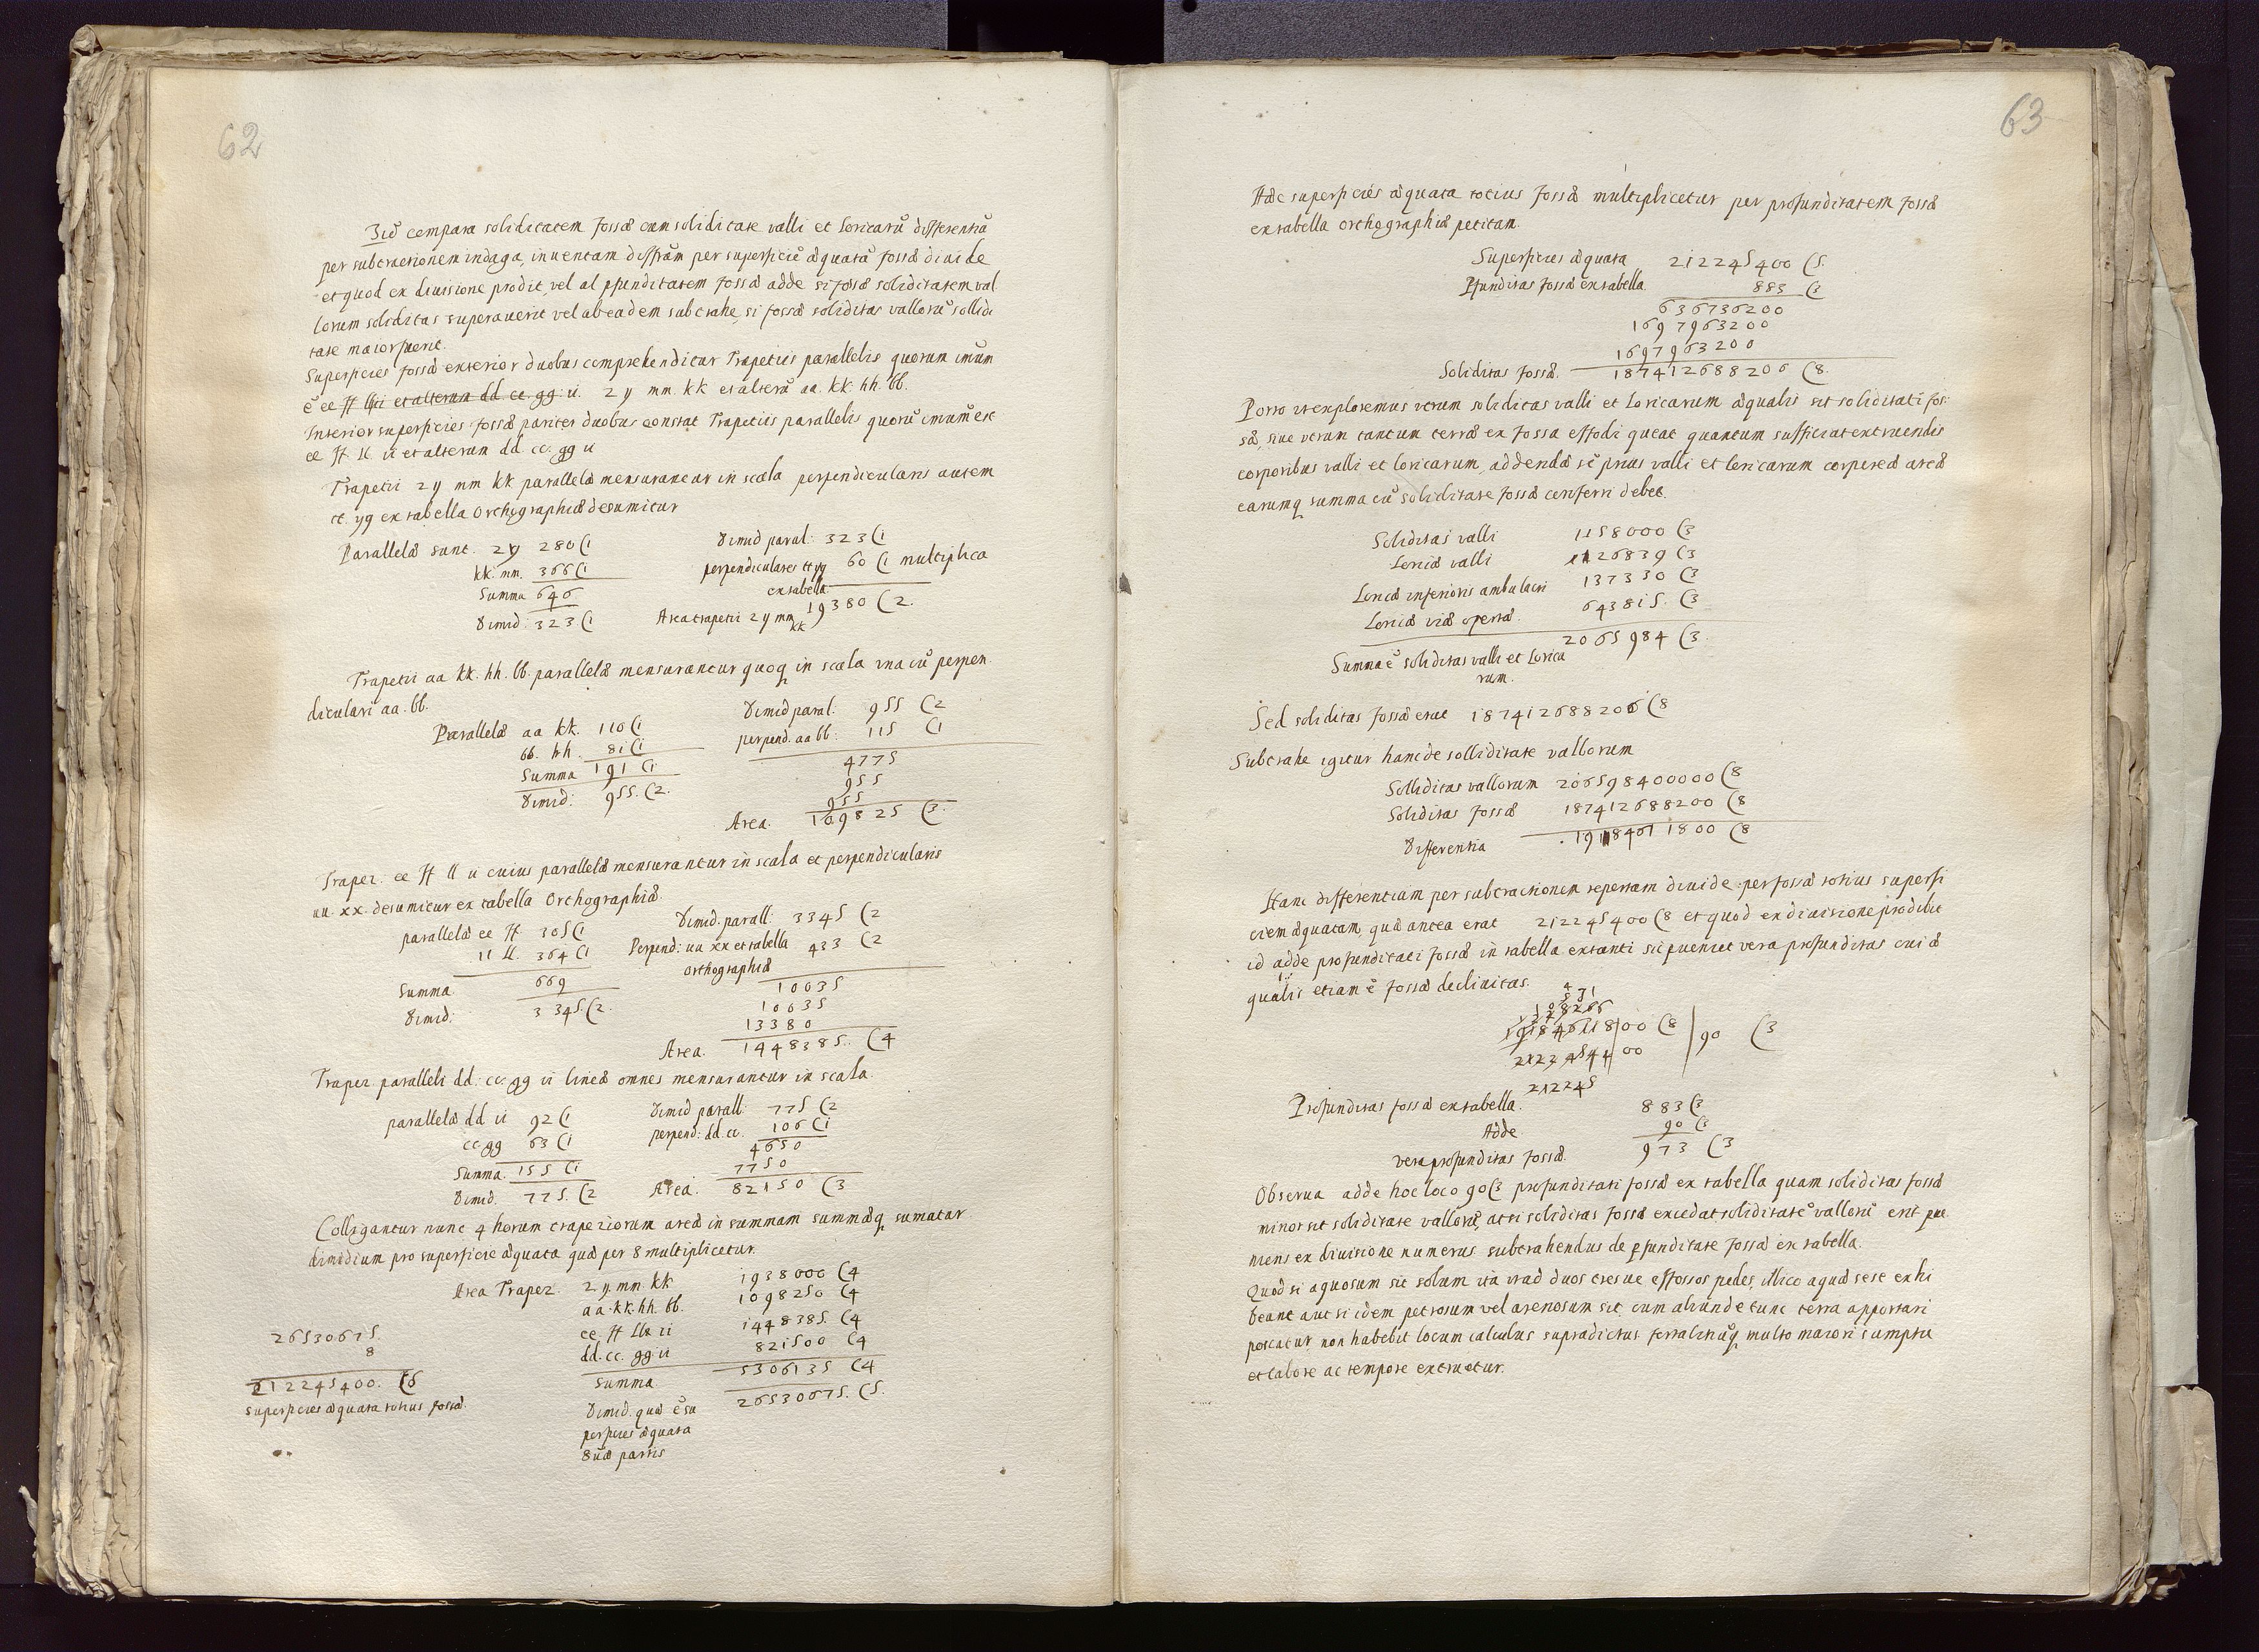 62
3iũ compara soliditatem fossæ cum soliditate valli et loricarũ differentiã
per subtractionem indaga, inventam diffrãm per superficiẽ æquatã fossæ divide
et quod ex divisione prodit, vel al pfunditatem fossæ adde si fossæ soliditatem val
lorum soliditas superaverit vel ab eadem subtrahe, si fossæ soliditas vallorũ sollidi
tate maior fuerit.
Superficies fossæ exterior duobus comprehenditur Trapetiis parallelis quorum unum
ẽ ee ff llii et alterum dd. cc. gg. ii. 2 y mm. kk et alterũ aa. kk. hh. bb.
Interior superficies fossæ pariter duobus constat Trapetiis parallelis quorũ unum est
ee ff. ll. ii et alterum dd. cc. gg ii
Trapetii 2 y mm kk parallelæ mensurantur in scala perpendicularis autem
tt. yg ex tabella Orthographiæ desumitur
Parallelæ sunt. 2 y 280 (1
kk. mm. 366 (1
Summa 646
Dimid. 323 (1
Dimid paral: 323 (1
perpendiculares tt yg 60 (1 multiplica
ex tabella
Area trapetii 2 y mm kk 19380 (2.
Trapetii aa kk. hh. bb. parallelæ mensurantur quoq in scala una cũ perpen
diculari aa. bb.
Parallelæ aa kk. 110 (1
bb. hh. 81 (1
Summa 191 (1
Dimid: 955. (2.
Dimid paral. 955 (2
perpend. aa bb: 115 (1
4775
955
955
Area. 109825 (3.
Trapez. ee ff ll ii cuius parallelæ mensurantur in scala et perpendicularis
uu. xx. desumitur ex tabella Orthographiæ.
parallelæ ee ff 305 (1
ii ll. 364 (1
Summa 669
Dimid: 3345. (2.
Dimid. parall: 3345 (2
Perpend: uu xx et tabella 433 (2
Orthographiæ
10035
10035
13380
Area. 1448385. (4
Trapez. paralleli dd. cc. gg ii lineæ omnes mensurantur in scala.
parallelæ dd ii 92 (1
cc. gg 63 (1
Summa. 155 (1
Dimid. 775. (2
Dimid parall: 775 (2
perpend: dd. cc. 106 (1
4650
7750
Area. 82150 (3
Colligantur nunc 4 horum trapeziorum areæ in summam summæq sumatur
dimidium pro superficie æquata quæ per 8 multiplicetur.
Area Trapez. 2 y. mm kk 1938000 (4
aa. kk. hh. bb. 1098250 (4
ee. ff ll ii 1448385. (4
dd. cc. gg. ii 821500 (4
Summa 5306135 (4
Dimid. quæ ẽ su 26530675. (5.
perficies æquata
8uæ partis
26530675.
8
212245400. (6
Superficies æquata totius fossæ.
63
Hæc superficies æquata totius fossæ multiplicetur per profunditatem fossæ
ex tabella Orthographiæ petitam.
Superficies æquata 212245400 (5.
Pfunditas fossæ ex tabella 883 (3
636736200
1697963200
1697963200
Soliditas fossæ. 187412688206 (8.
Porro ut exploremus utrum soliditas valli et Loricarum æqualis sit soliditati fos
sæ, sive utrum tantum terræ ex fossa effodi queat quantum sufficiat extruendis
corporibus valli et loricarum, addendæ sũ prius valli et loricarum corporeæ areæ
earumq summa cũ soliditate fossæ conferri debet.
Soliditas valli 1158000 (3
Loricæ valli 126839 (3
Loricæ inferioris ambulacri 137330 (3
Loricæ viæ opertæ. 643815. (3
Summa ẽ soliditas valli et Lorica 2065984 (3.
rum.
Sed soliditas fossæ erat 187412688206 (8
Subtrahe igitur hanc de solliditate vallorum
Solliditas vallorum 206598400000 (8
Soliditas fossæ 187412688200 (8
Differentia 19184611800 (8
Hanc differentiam per subtractionem repertam divide per fossæ totius superfi
ciem æquatam, quæ antea erat 212245400 (8 et quod ex divisione prodibit
id adde profunditati fossæ in tabella extanti sic pueniet vera profunditas cui æ
qualis etiam ẽ fossæ declivitas.
19184611800 (8 | 90 (3
212245
Profunditas fossæ ex tabella. 883 (3
Adde 90 (3
vera profunditas fossæ. 973 (3
Observa adde hoc loco 90 (3 profunditati fossæ ex tabella quam soliditas fossæ
minor sit soliditate vallorũ, at si soliditas fossæ excedat soliditatẽ vallorũ erit pue
niens ex divisione numerus subtrahendus de pfunditate fossæ ex tabella.
Quod si aquosum sit solum ita ut ad duos tresve effossos pedes, illico aquæ sese exhi
beant aut si idem petrosum vel arenosum sit, cum aliunde tunc terra apportari
poscatur non habebit locum calculus supradictus fortalitiaq multo maiori sumptu
et labore ac tempore extructur.